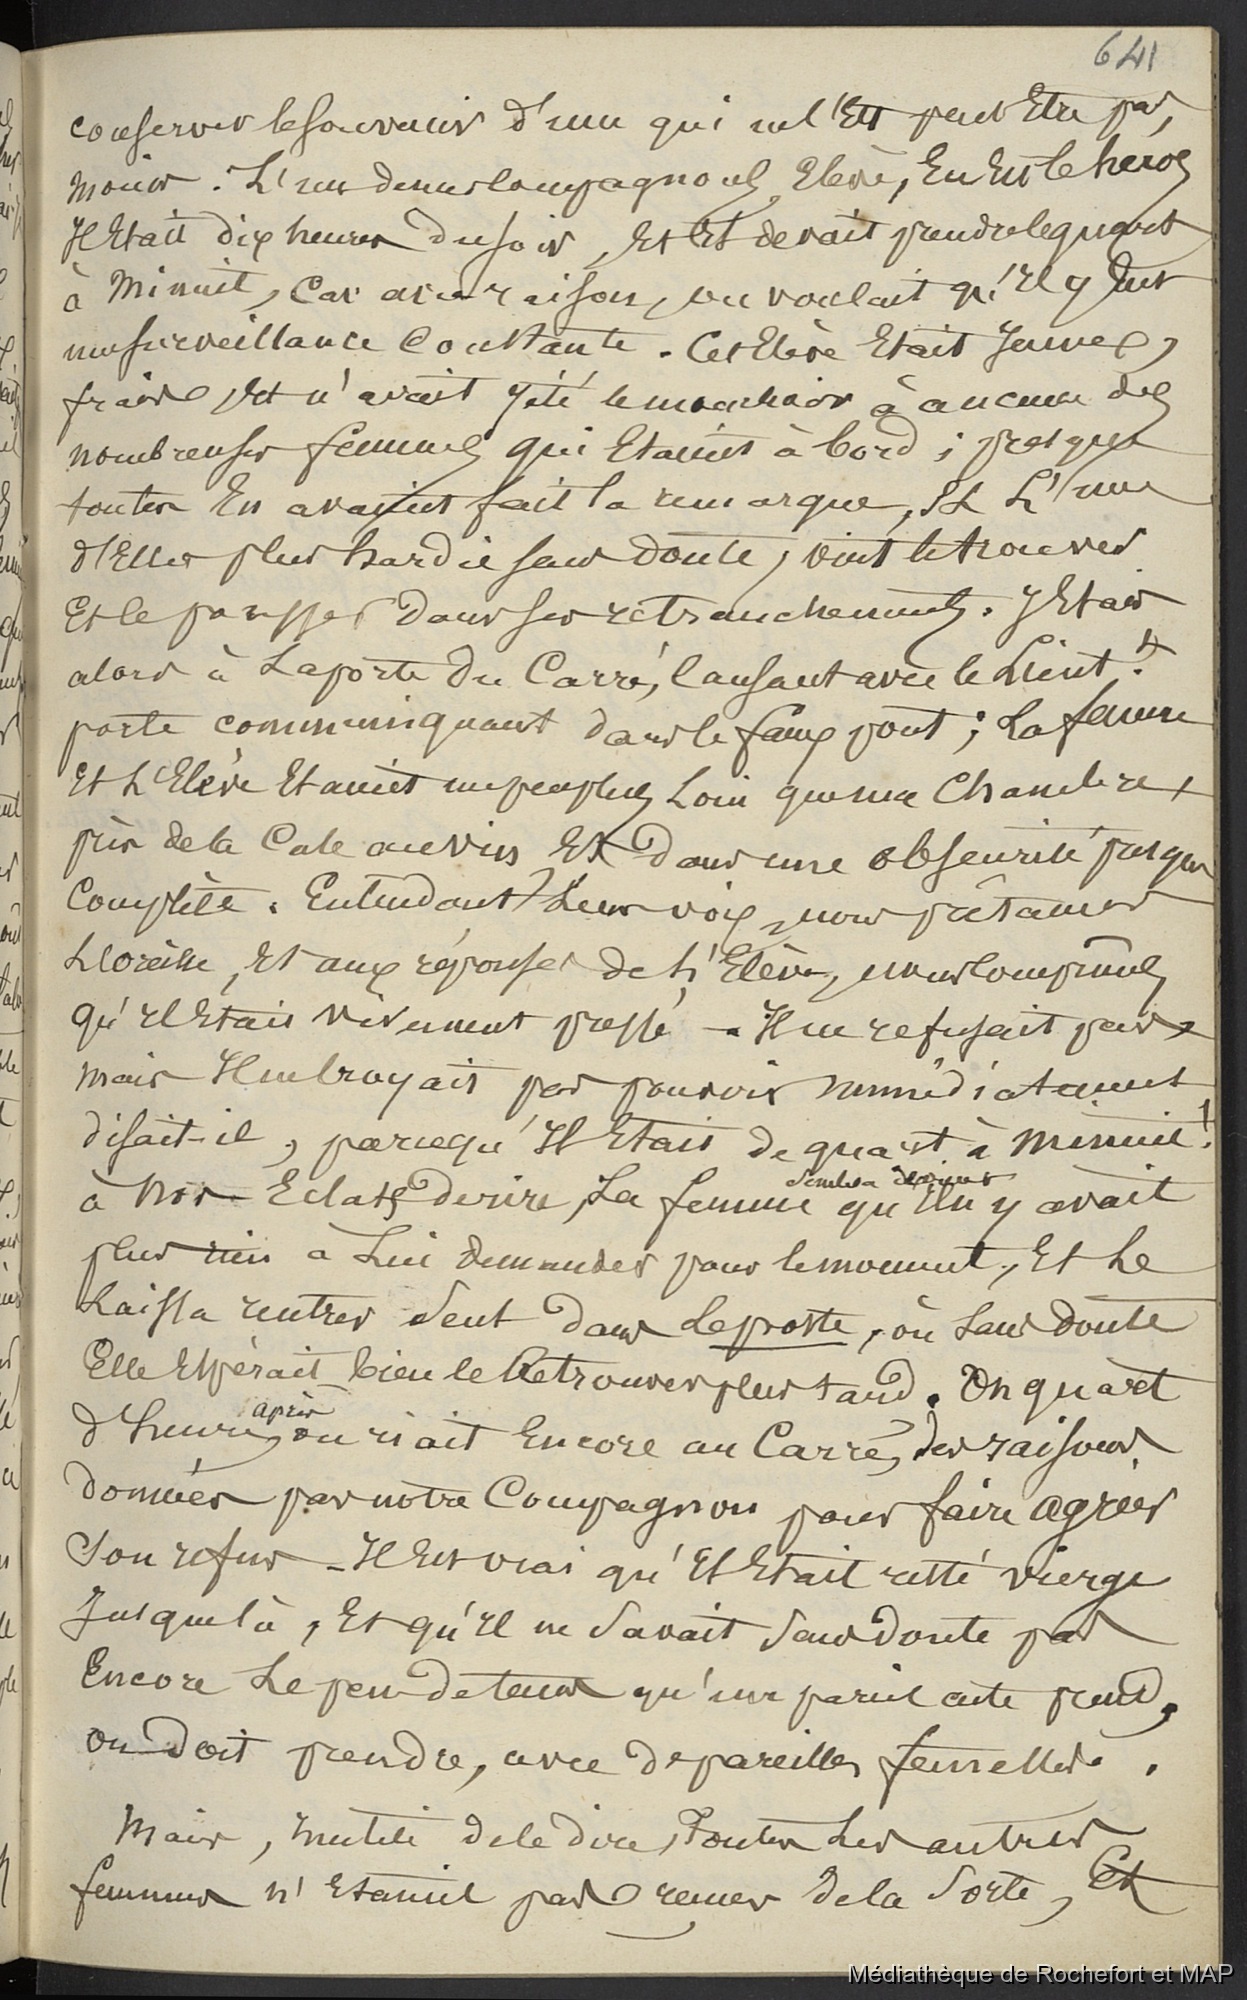 641
conserver le souvenir d'un qui ne l'est peut être pas
moins. L'un de nos compagnons, Elève, En Est le heros
Il Etait dix heures du soir, Et Il devait prendre le quart
à Minuit, Car avec raison, on voulait qu'Il y Eut
une surveillance Constante. Cet Elève Etait Jeune,
frais, Et n'avait jété le mouchoir à aucune des
nombreuses femmes qui Etaient à bord ; presque
toutes En avaient fait la remarque, Et L'une
d'Elles plus hardie sans doute, vint le trouver
Et le pousser dans ses retranchements. J'Etais
alors à La porte du Carré, Causant avec le Lieut.t
porte communiquant dans le faux pont ; La femme
Et L'Elève Etaient un peu plus Loin que ma Chambre,
près de la Cale au vin Et dans une obscurité presque
Complète. Entendant Leurs voix, nous prêtames
L'oreille, Et aux réponses de L'Elève, nous comprîmes
qu'Il Etait vivement pressé - Il ne refusait pas,
mais Il ne croyait pas pouvoir immédiatement
disait-il, parcequ'Il Etait de quart à Minuit !
à nos Eclats de rire, La femme sembla deviner qu'Il n'y avait
plus rien à Lui demander pour le moment, Et Le
Laissa rentrer seul dans Le poste, où sans doute
Elle Espérait bien le Retrouver plus tard. Un quart
d'heure après, on riait Encore au Carré, des raisons
données par notre Compagnon pour faire agréer
son refus - Il Est vrai qu'Il Etait resté vierge
Jusque là, Et qu'Il ne savait sans doute pas
Encore Le peu de tems qu'un pareil acte prend,
ou doit prendre, avec de pareilles femelles.
Mais, inutile de le dire, Toutes Les autres
femmes n'Etaient pas remises de la sorte, Et
Médiathèque de Rochefort et MAP